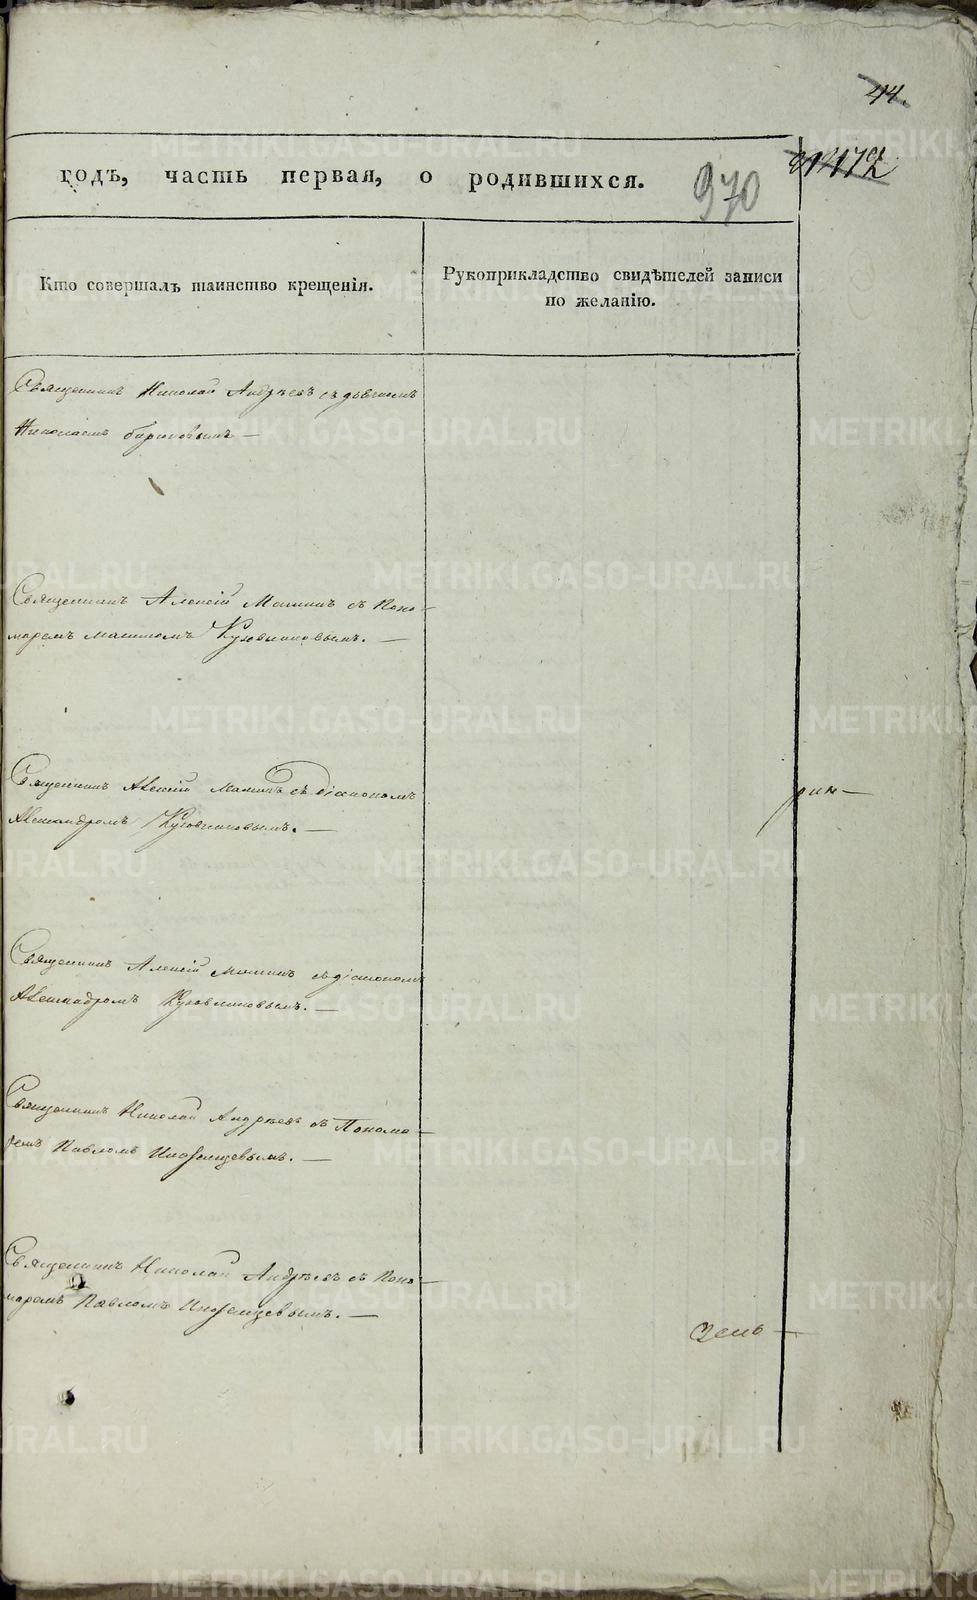 44.
годъ, часть первая, о родившихся.
970
Кто совершалъ таинство крещенія.
Рукоприкладство свидѣтелей записи
по желанію.
Священникъ Николай Андрѣевъ съ дьячкомъ
Николаемъ
Священникъ Алексій Маминъ съ Поно-
маремъ Кузовниковымъ. —
Священникъ Алексій Маминъ съ діакономъ
Александромъ Кузовниковымъ. —
рин—
Священникъ Алексій Маминъ съ діакономъ
Александромъ Кузовниковымъ. —
Священникъ Николай Андрѣевъ съ Понома-
ремъ Павломъ Иноземцевымъ. —
Священникъ Николай Андрѣевъ съ Поно-
маремъ Павломъ Иноземцевымъ. —
зень —
METRIKI.GASO-URAL.RU